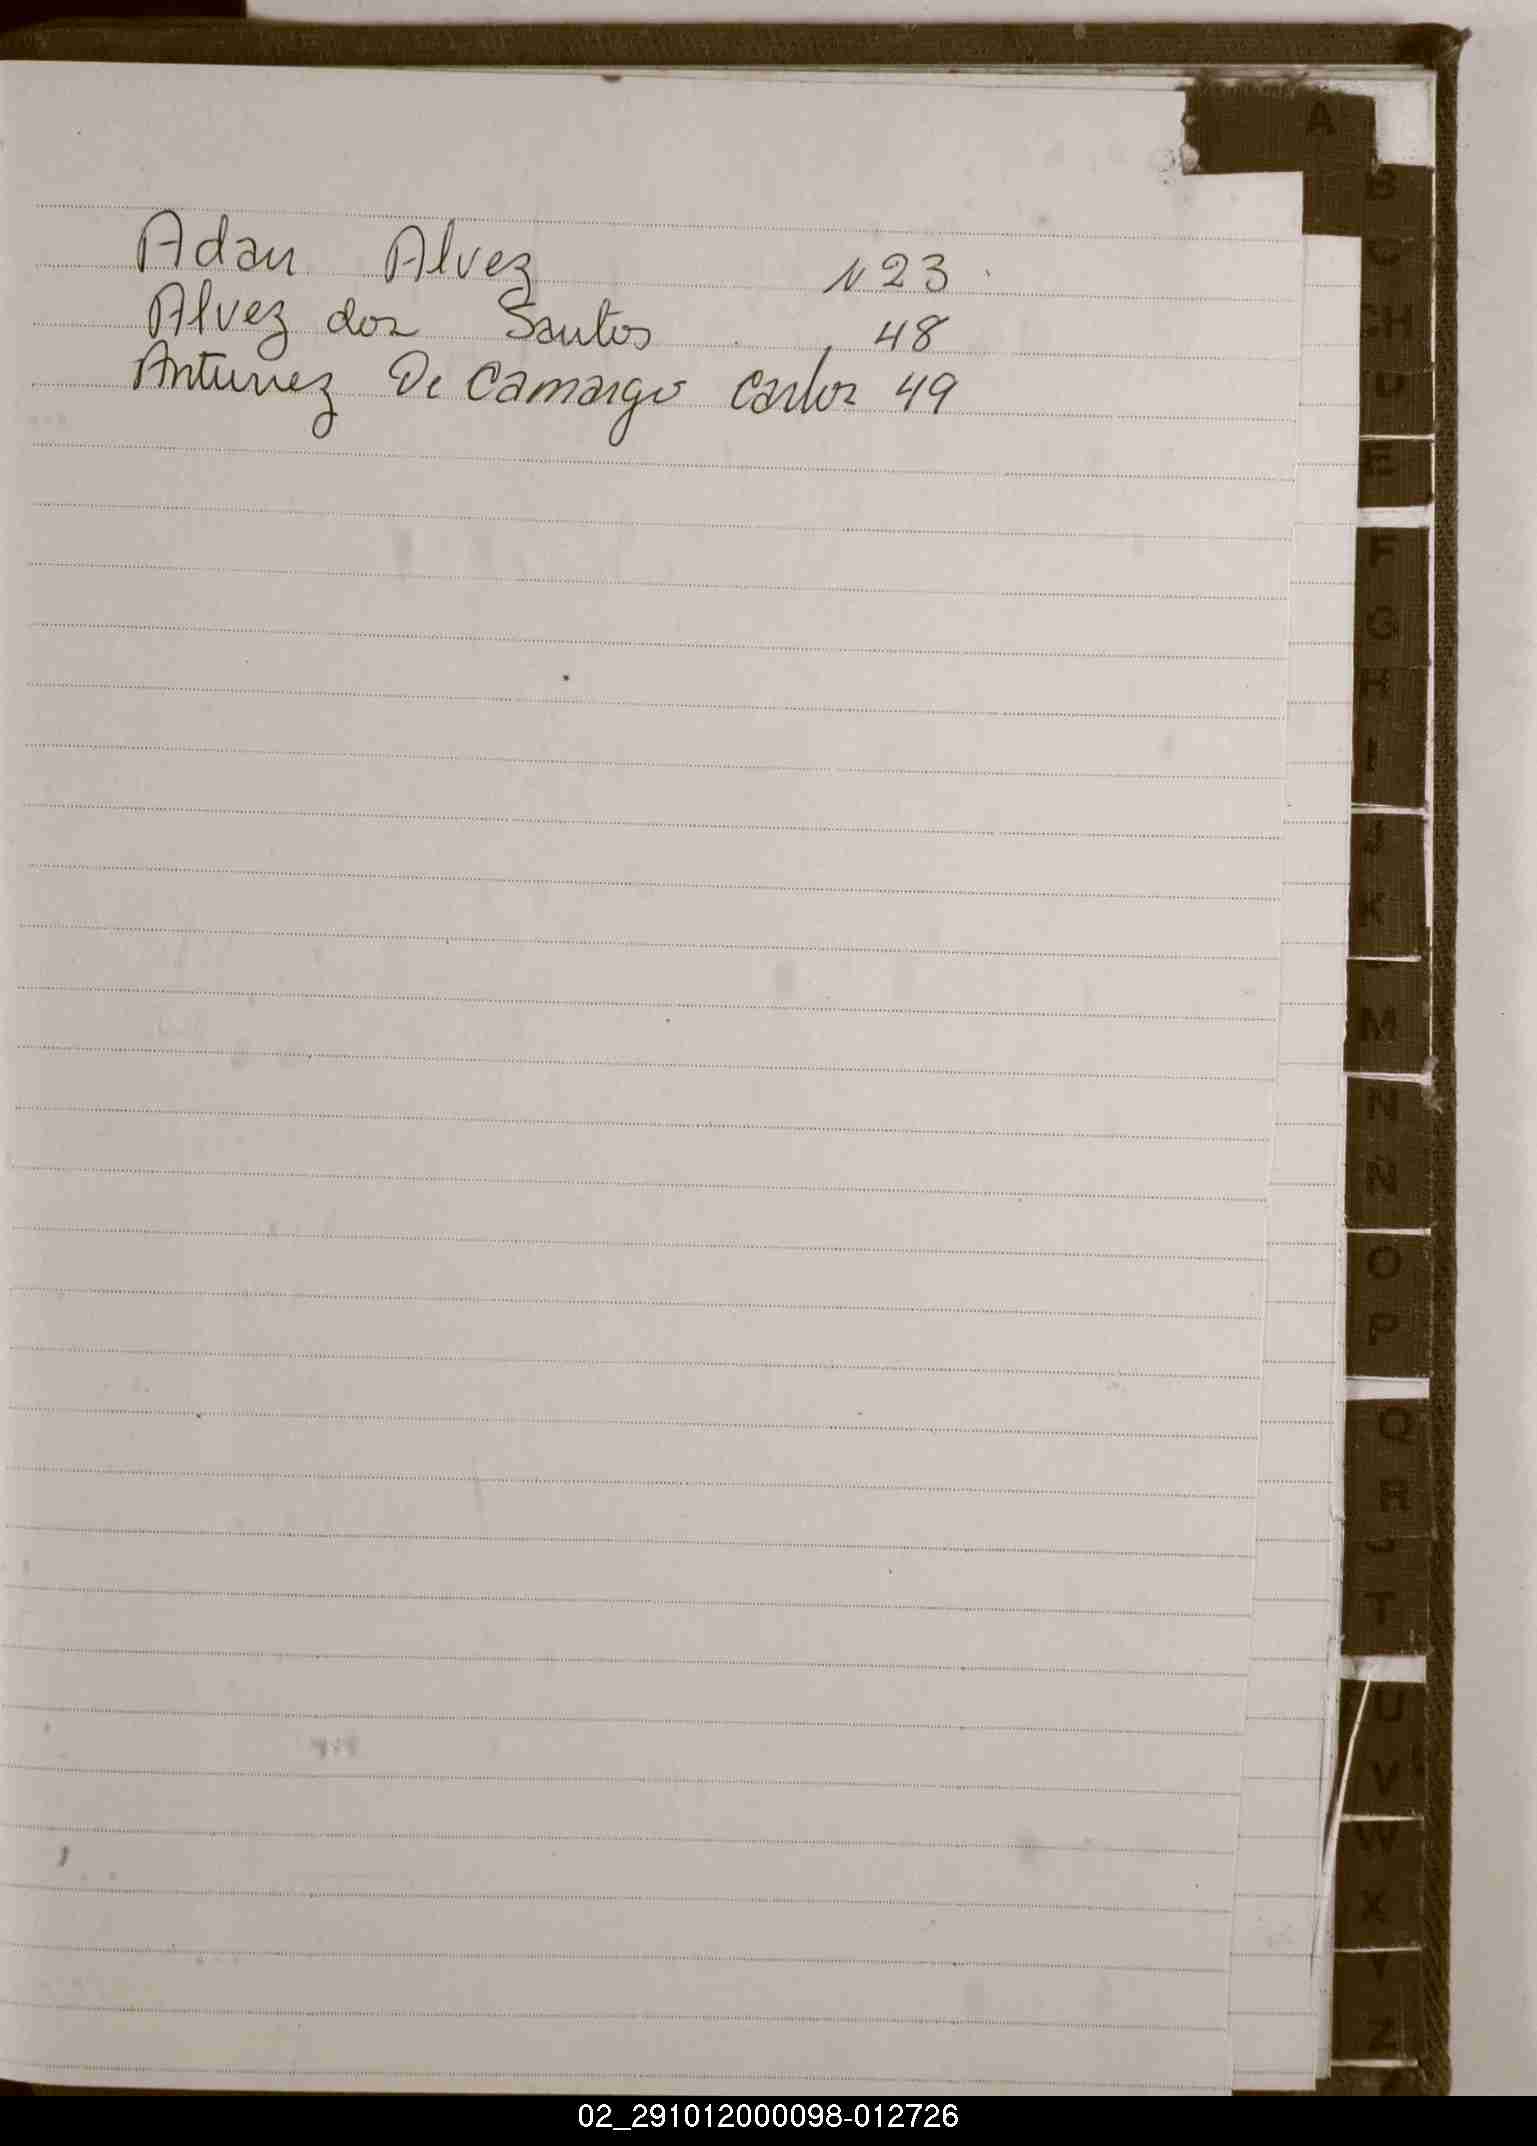 A
Adan Alvez N 23
B
Alvez dos Santos 48
CH
Antunez De Camargo Carlos 49
D
E
F
G
H
I
J
K
M
N
N
O
P
Q
R
T
U
V
W
X
Z
02_291012000098-012726